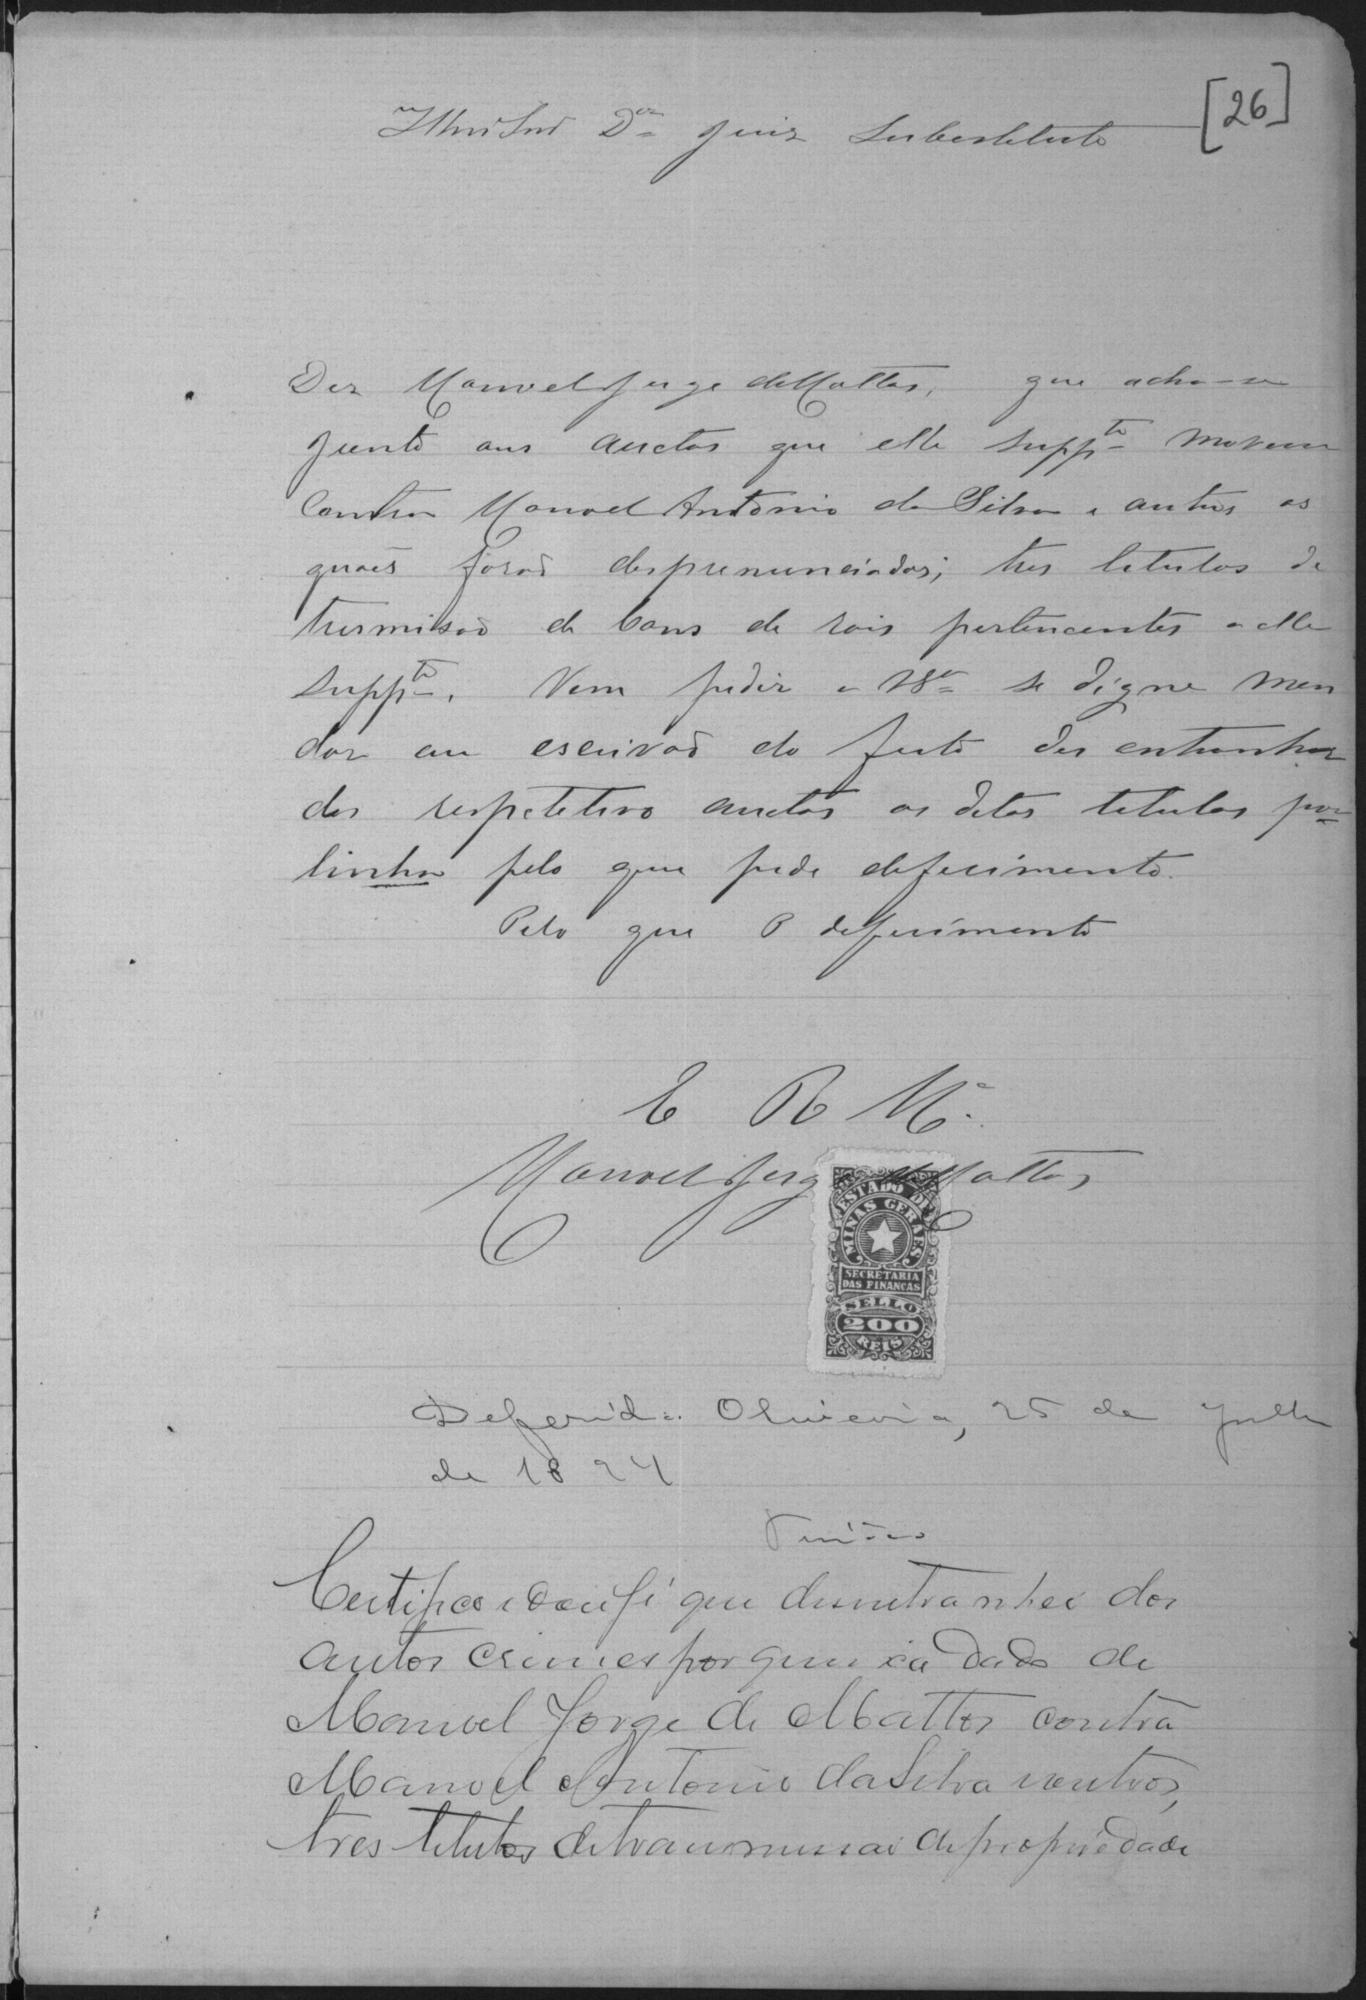 [26]
Illmo Snr Dor Juiz Substituto
Diz Manoel Jorge de Mattos, que acha-se
junto aus auctos que elle suppte moveu
Contra Manoel Antonio da Silva e outros os
quaes forão desprenunciados; tres titulos de
tresmisão de bens de rais pertencentes a elle
suppte. Vem pedir a VSa se digne man
dar au escrivão do feito des entranhar
dos respetetivo auctos os ditos titulos por
linha pelo que pede deferimento.
Pelo que P deferimento
E R Mce
Manoel Jorge de Mattos
ESTADO DE
MINAS GERAES
SECRETARIA
DAS FINANÇAS
SELLO
200
REIS
Deferida. Oliveira, 25 de Julho
de 1894
Certifico e dou fé que desentranhei dos
autos crimes por queixa dada de
Manoel Jorge de Mattos contra
Manoel Antonio da Silva e outros,
tres titulos de transmissão de propriedade